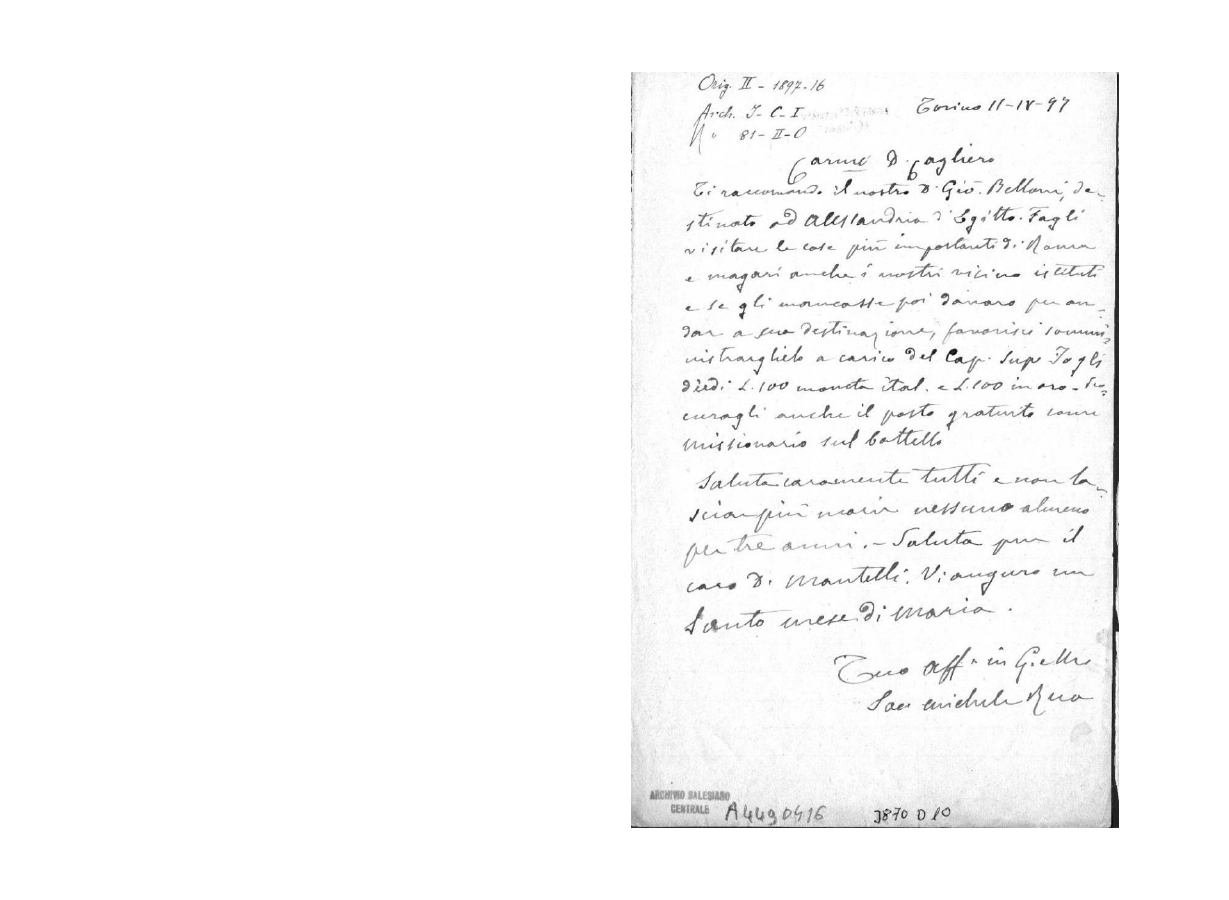 Orig. II - 1897-16
Arch. I-C-I
81-II-O
Torino 11-IV-97
Carmo D. Cagliero
Ti raccomando il nostro D. Gio. Belloni, de-
stinato ad Alessandria d'Egitto. Fagli
visitare le cose più importanti di Roma
e magari anche i nostri vicino istituti
e se gli mancasse poi danaro per an-
dar a sua destinazione, favorisci sommi-
nistrarglielo a carico del Cap. Sup. Io gli
diedi L. 100 moneta ital. e L. 100 in oro - Pro-
curagli anche il posto gratuito come
missionario sul battello
Saluta caramente tutti e non la-
sciar più morir nessuno almeno
per tre anni. - Saluta pur il
caro D. Mantelli. Vi auguro un
Santo mese di Maria.
Tuo aff. in G. e M.
Sac. Michele Rua
ARCHIVIO SALESIANO
CENTRALE
A4490416
3870 D 10